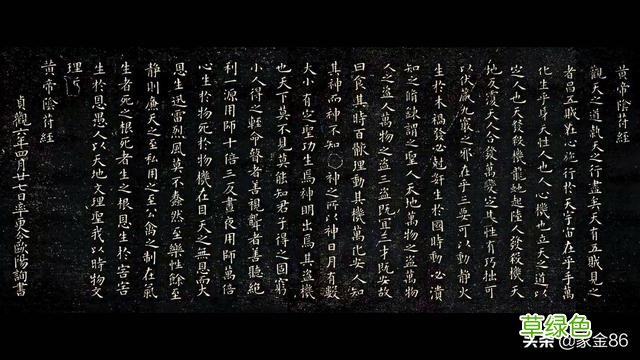 黄帝陰符經
觀天之道執天之行盡矣天有五賊見之
者昌五賊在心施行於天宇宙在乎手萬
化生乎身天性人也人心機也立天之道以
定人也天發殺機龍虵起陸人發殺機天
地反覆天人合發萬變之基性有巧拙可
以伏藏九竅之邪在乎三要可以動靜火
生於木禍發必剋姧生於國時動必潰
知之脩鍊謂之聖人天地萬物之盜萬物
人之盜人萬物之盜三盜既宜三才既安故
曰食其時百骸理動其機萬化安人知
其神而神不知神之所以神日月有數
大小有定聖功生焉神明出焉其盜機
也天下莫不見莫能知君子得之固窮
小人得之輕命聾者善視瞽者善聽絕
利一源用師十倍三反晝夜用師萬倍
心生於物死於物機在目天之無恩而大
恩生迅雷烈風莫不蠢然至樂性餘至
靜則廉天之至私用之至公禽之制在氣
生者死之根死者生之根恩生於害害
生於恩愚人以天地文理聖我以時物文
理
黄帝陰符經
貞觀六年四月廿七日率更令歐陽詢書
草绿色
头条 @家金86